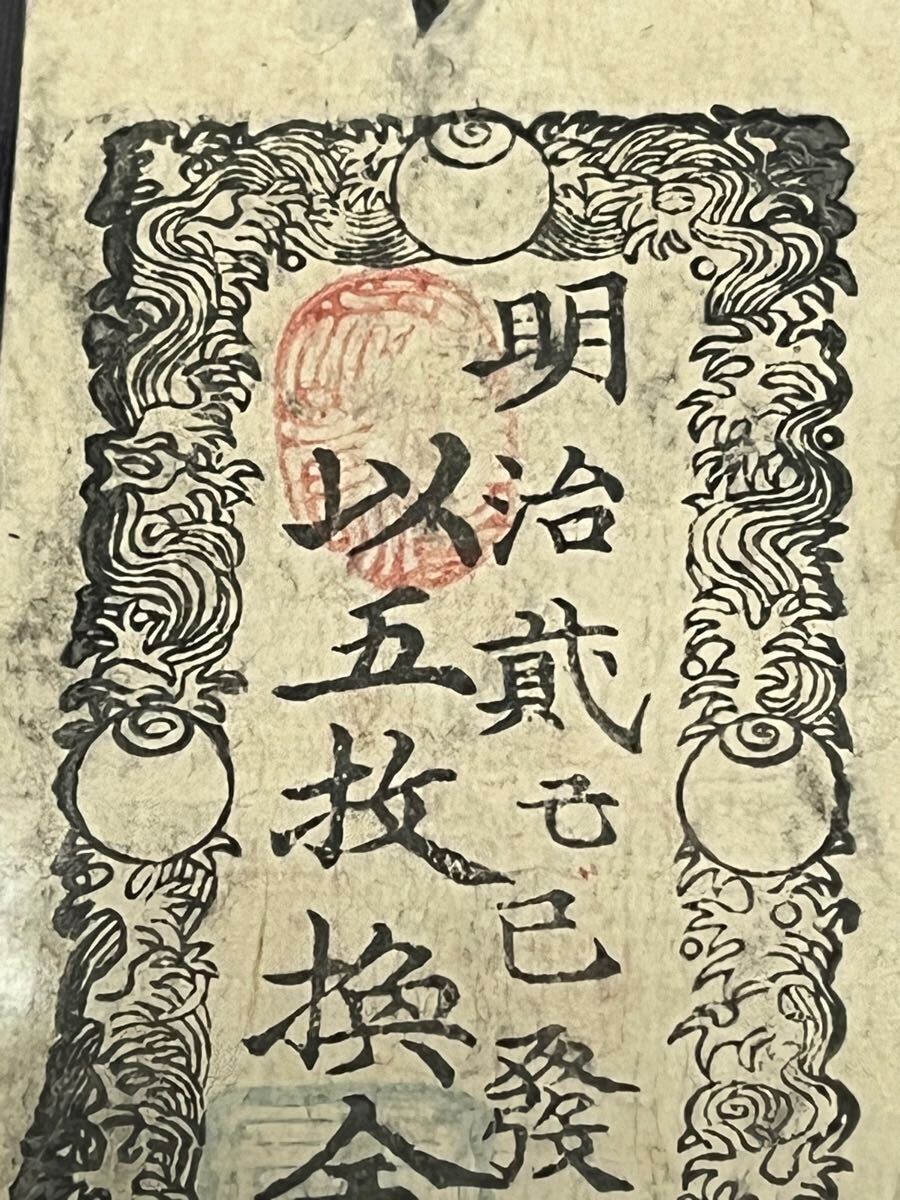 明治貳巳發
以五枚換金